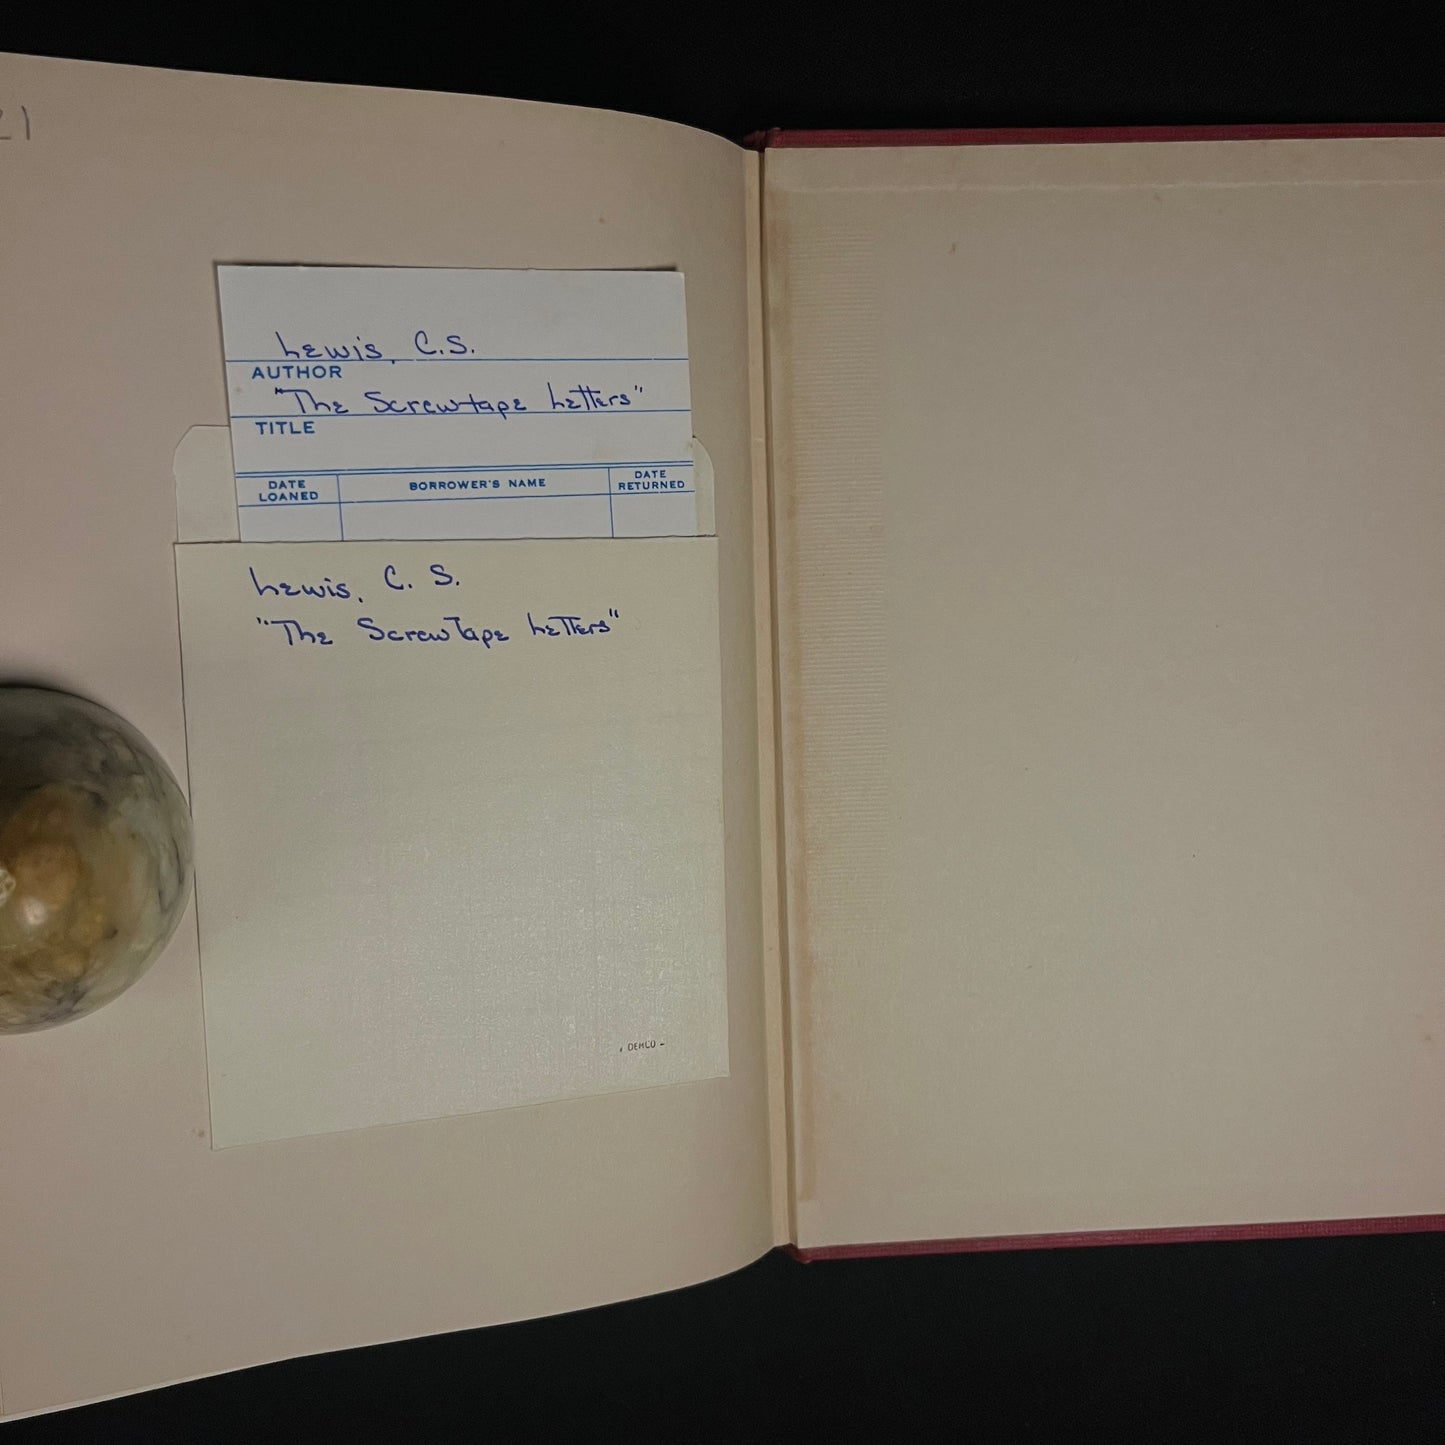 21
Lewis, C.S.
AUTHOR
"The Screwtape Letters"
TITLE
DATE LOANED
BORROWER'S NAME
DATE RETURNED
Lewis, C. S.
"The Screwtape Letters"
DEMCO